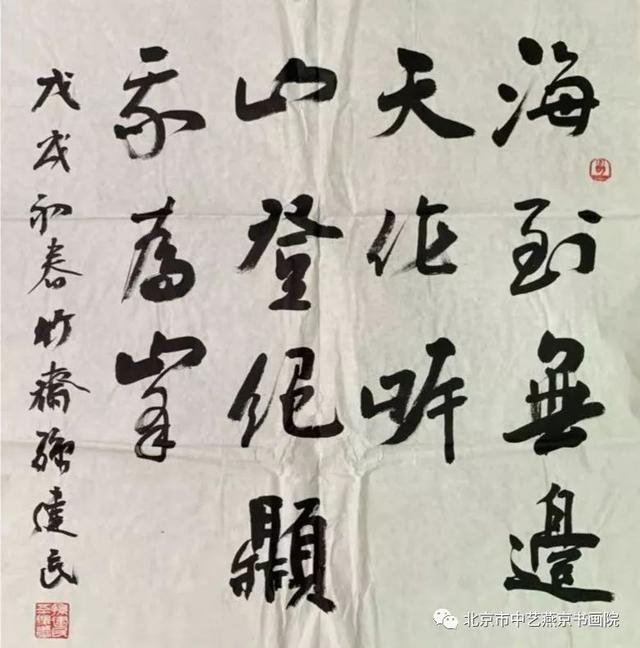 海到無邊
天作岸
山登絕顛
我為峯
戊戌初春竹齋建民
北京市中艺燕京书画院